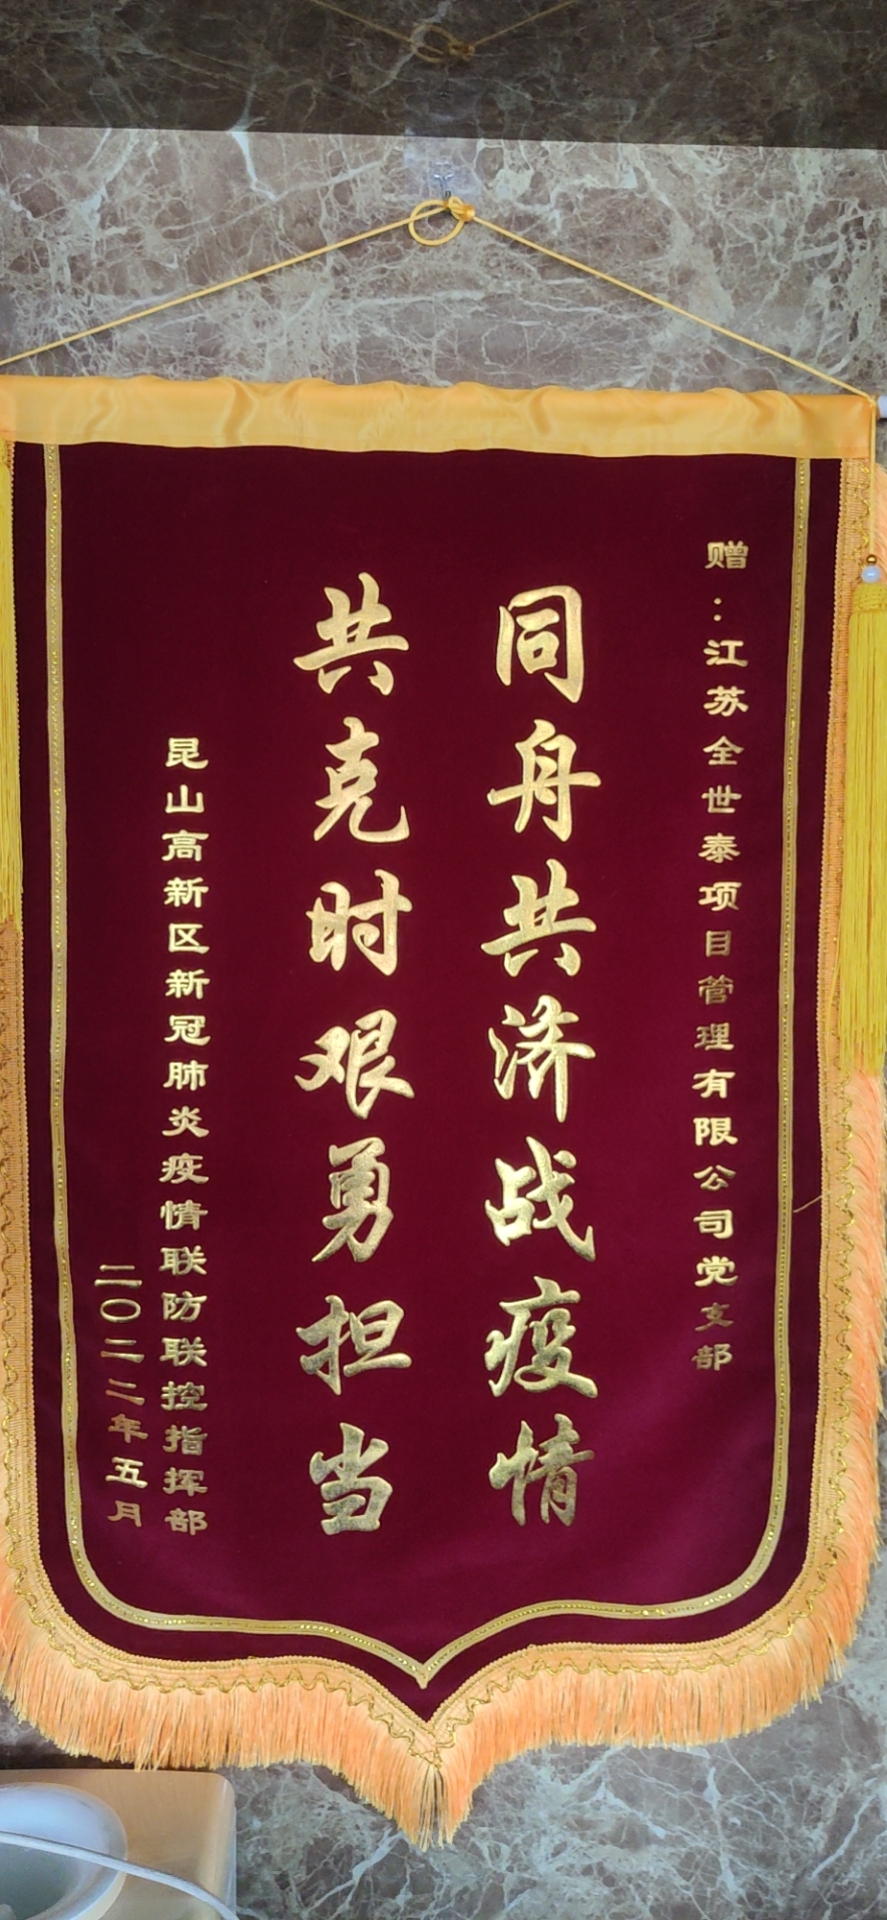 赠：江苏全世泰项目管理有限公司党支部
同舟共济战疫情
共克时艰勇担当
昆山高新区新冠肺炎疫情联防联控指挥部
二〇二二年五月